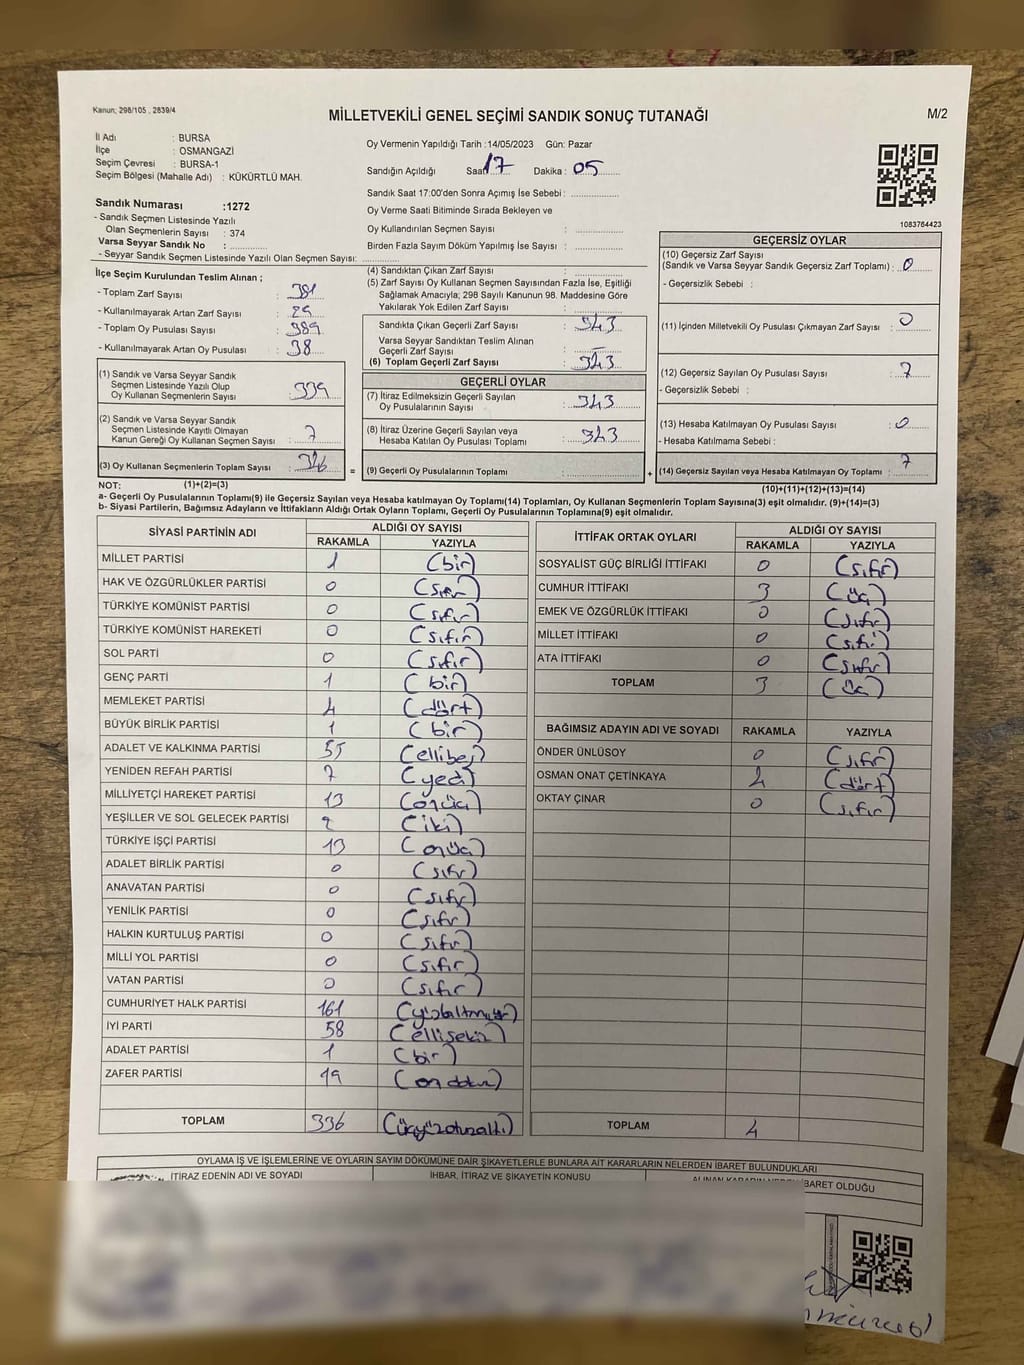 Kanun; 298/105 , 2839/4
MİLLETVEKİLİ GENEL SEÇİMİ SANDIK SONUÇ TUTANAĞI
M/2
İl Adı : BURSA
İlçe : OSMANGAZİ
Seçim Çevresi : BURSA-1
Seçim Bölgesi (Mahalle Adı) : KÜKÜRTLÜ MAH.
Sandık Numarası :1272
- Sandık Seçmen Listesinde Yazılı
Olan Seçmenlerin Sayısı : 374
Varsa Seyyar Sandık No :
- Seyyar Sandık Listesinde Yazılı Olan Seçmen Sayısı:
Oy Vermenin Yapıldığı Tarih :14/05/2023 Gün: Pazar
Sandığın Açıldığı Saat 17 Dakika : 05
Sandık Saat 17:00'den Sonra Açımış İse Sebebi :
Oy Verme Saati Bitiminde Sırada Bekleyen ve
Oy Kullandırılan Seçmen Sayısı :
Birden Fazla Sayım Döküm Yapılmış İse Sayısı :
1083764423
İlçe Seçim Kurulundan Teslim Alınan ;
- Toplam Zarf Sayısı : 381
- Kullanılmayarak Artan Zarf Sayısı :
- Toplam Oy Pusulası Sayısı : 389
- Kullanılmayarak Artan Oy Pusulası : 38
(1) Sandık ve Varsa Seyyar Sandık
Seçmen Listesinde Yazılı Olup
Oy Kullanan Seçmenlerin Sayısı : 339
(2) Sandık ve Varsa Seyyar Sandık
Seçmen Listesinde Kayıtlı Olmayan
Kanun Gereği Oy Kullanan Seçmen Sayısı : 7
(3) Oy Kullanan Seçmenlerin Toplam Sayısı : =
(4) Sandıktan Çıkan Zarf Sayısı :
(5) Zarf Sayısı Oy Kullanan Seçmen Sayısından Fazla İse, Eşitliği
Sağlamak Amacıyla; 298 Sayılı Kanunun 98. Maddesine Göre
Yakılarak Yok Edilen Zarf Sayısı :
Sandıkta Çıkan Geçerli Zarf Sayısı : 343
Varsa Seyyar Sandıktan Teslim Alınan
Geçerli Zarf Sayısı : –
(6) Toplam Geçerli Zarf Sayısı : 343
GEÇERLİ OYLAR
(7) İtiraz Edilmeksizin Geçerli Sayılan
Oy Pusulalarının Sayısı : 343
(8) İtiraz Üzerine Geçerli Sayılan veya
Hesaba Katılan Oy Pusulası Toplamı : 343
(9) Geçerli Oy Pusulalarının Toplamı : +
GEÇERSİZ OYLAR
(10) Geçersiz Zarf Sayısı
(Sandık ve Varsa Seyyar Sandık Geçersiz Zarf Toplamı) : 0
- Geçersizlik Sebebi :
(11) İçinden Milletvekili Oy Pusulası Çıkmayan Zarf Sayısı : 0
(12) Geçersiz Sayılan Oy Pusulası Sayısı : 7
- Geçersizlik Sebebi :
(13) Hesaba Katılmayan Oy Pusulası Sayısı : 0
- Hesaba Katılmama Sebebi :
(14) Geçersiz Sayılan veya Hesaba Katılmayan Oy Toplamı : 7
NOT: (1)+(2)=(3)
(10)+(11)+(12)+(13)=(14)
a- Geçerli Oy Pusulalarının Toplamı(9) ile Geçersiz Sayılan veya Hesaba katılmayan Oy Toplamı(14) Toplamları, Oy Kullanan Seçmenlerin Toplam Sayısına(3) eşit olmalıdır. (9)+(14)=(3)
b- Siyasi Partilerin, Bağımsız Adayların ve İttifakların Aldığı Ortak Oyların Toplamı, Geçerli Oy Pusulalarının Toplamına(9) eşit olmalıdır.
SİYASİ PARTİNİN ADI ALDIĞI OY SAYISI
RAKAMLA YAZIYLA
MİLLET PARTİSİ 1 (bir)
HAK VE ÖZGÜRLÜKLER PARTİSİ 0 (sıfır)
TÜRKİYE KOMÜNİST PARTİSİ 0 (sıfır)
TÜRKİYE KOMÜNİST HAREKETİ 0 (sıfır)
SOL PARTİ 0 (sıfır)
GENÇ PARTİ 1 (bir)
MEMLEKET PARTİSİ 4 (dört)
BÜYÜK BİRLİK PARTİSİ 1 (bir)
ADALET VE KALKINMA PARTİSİ 55 (ellibeş)
YENİDEN REFAH PARTİSİ 7 (yedi)
MİLLİYETÇİ HAREKET PARTİSİ 13 (onüç)
YEŞİLLER VE SOL GELECEK PARTİSİ 2 (iki)
TÜRKİYE İŞÇİ PARTİSİ 13 (onüç)
ADALET BİRLİK PARTİSİ 0 (sıfır)
ANAVATAN PARTİSİ 0 (sıfır)
YENİLİK PARTİSİ 0 (sıfır)
HALKIN KURTULUŞ PARTİSİ 0 (sıfır)
MİLLİ YOL PARTİSİ 0 (sıfır)
VATAN PARTİSİ 0 (sıfır)
CUMHURİYET HALK PARTİSİ 161 (yüzaltmışbir)
İYİ PARTİ 58 (ellisekiz)
ADALET PARTİSİ 1 (bir)
ZAFER PARTİSİ 19 (ondokuz)
TOPLAM 336 (üçyüzotuzaltı)
İTTİFAK ORTAK OYLARI ALDIĞI OY SAYISI
RAKAMLA YAZIYLA
SOSYALİST GÜÇ BİRLİĞİ İTTİFAKI 0 (sıfır)
CUMHUR İTTİFAKI 3 (üç)
EMEK VE ÖZGÜRLÜK İTTİFAKI 0 (sıfır)
MİLLET İTTİFAKI 0 (sıfır)
ATA İTTİFAKI 0 (sıfır)
TOPLAM 3 (üç)
BAĞIMSIZ ADAYIN ADI VE SOYADI RAKAMLA YAZIYLA
ÖNDER ÜNLÜSOY 0 (sıfır)
OSMAN ONAT ÇETİNKAYA 4 (dört)
OKTAY ÇINAR 0 (sıfır)
TOPLAM 4
OYLAMA İŞ VE İŞLEMLERİNE VE OYLARIN SAYIM DÖKÜMÜNE DAİR ŞİKAYETLERLE BUNLARA AİT KARARLARIN NELERDEN İBARET BULUNDUKLARI
İTİRAZ EDENİN ADI VE SOYADI İHBAR, İTİRAZ VE ŞİKAYETİN KONUSU ALINAN KARARIN NEDEN İBARET OLDUĞU